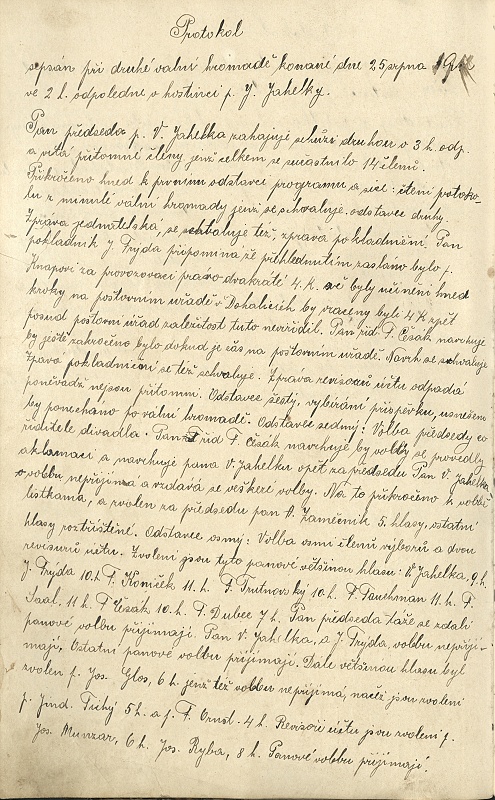 Protokol
sepsán při druhé valní hromadě konané dne 25 srpna
ve 2 h. odpoledne v hostinci p. J. Jahelky.
Pan předseda p. V. Jahelka zahajuje schůzi druhou o 3 h. odp.
a vítá přítomné členy jenž celkem se súčastnilo 14 členů.
Přikročeno hned k prvním odstavci programu a sice: čtení protoko-
lu z minulé valní hromady jenž se schvaluje. odstavec druhý.
Zpráva jednatelská, se schvaluje též, zpráva pokladniční. Pan
pokladník J. Frýda připomíná že přehlednutím zasláno bylo p.
Knapovi za provozovací právo dvakráté 4. K. by byly učiněni hned
kroky na poštovním úřadě v Dohalicích by vráceny byli 4 K zpět
posud poštovní úřad zaležitost tuto nevyřídil. Pan řid. F. Čšák navrhuje
by ještě zakročeno bylo dokud je čas na poštovním úřadě. Navrh se schvaluje
Zpráva pokladniční se též schvaluje. Zpráva revisorů účtu odpadá
poněvádž nejsou přítomni. Odstavec šestý, vybírání příspěvku, usnešem
by ponecháno po valní hromadě. Odstavec sedmý: Volba předsedy co
řiditele divadla. Pan řid F. Čšák navrhuje by volby se provedly
aklamací a navrhuje pana V. Jahelku opět za předsedu Pan V. Jahelka
volbu nepřijímá a vzdává se veškeré volby. Na to přikročeno k volbě
lístkama, a zvolen za předsedu pan A. Zamečník 5. hlasy, ostatní
hlasy roztříštěné. Odstavec osmý: Volba osmi členů výborů a dvou
revisorů účtu. Zvoleni jsou tyto panové většinou hlasu: V Jahelka, 9. h.
J. Frýda 10. h F. Koníček 11. h. F. Trutnovský 10. h. F. Fauchman 11. h. F.
Saal. 11. h F Čšák 10. h. F. Dubec 7 h. Pan předseda táže se zdali
panové volbu přijímají. Pan V. Jahelka, a J. Frýda, volbu nepřijí-
mají. Ostatní panové volbu přijímají. Dále většinou hlasu byl
zvolen p. Jos. Glos, 6 h. jenž též volbu nepřijímá, načež jsou zvoleni
p. Jind. Tichý 5 h. a p. F. Ornst. 4 h. Revisoři účtu jsou zvoleni p.
Jos. Munzar, 6 h. Jos. Ryba, 8 h. Panové volbu přijímají.